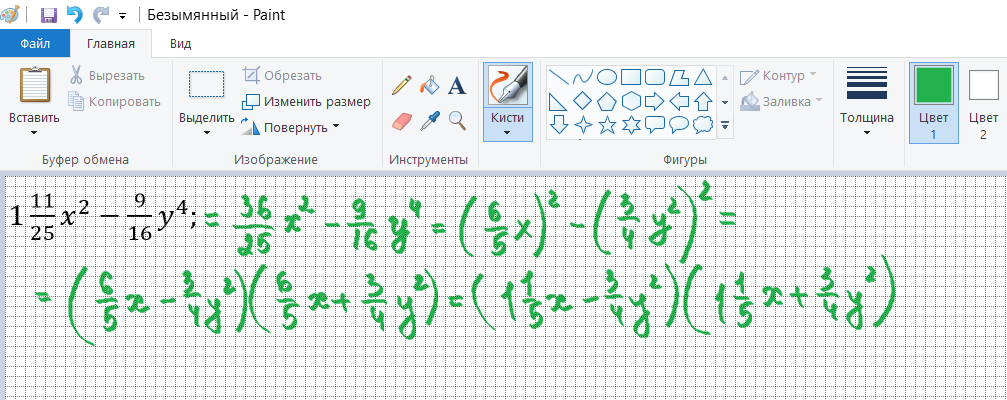 Безымянный - Paint
Файл Главная Вид
Вставить
Вырезать
Копировать
Буфер обмена
Выделить
Обрезать
Изменить размер
Повернуть
Изображение
A
Инструменты
Кисти
Контур
Заливка
Фигуры
Толщина
Цвет 1
Цвет 2
1 11/25 x² − 9/16 y⁴; = 36/25 x² − 9/16 y⁴ = (6/5 x)² − (3/4 y²)² =
= (6/5 x − 3/4 y²)(6/5 x + 3/4 y²) = (1 1/5 x − 3/4 y²)(1 1/5 x + 3/4 y²)